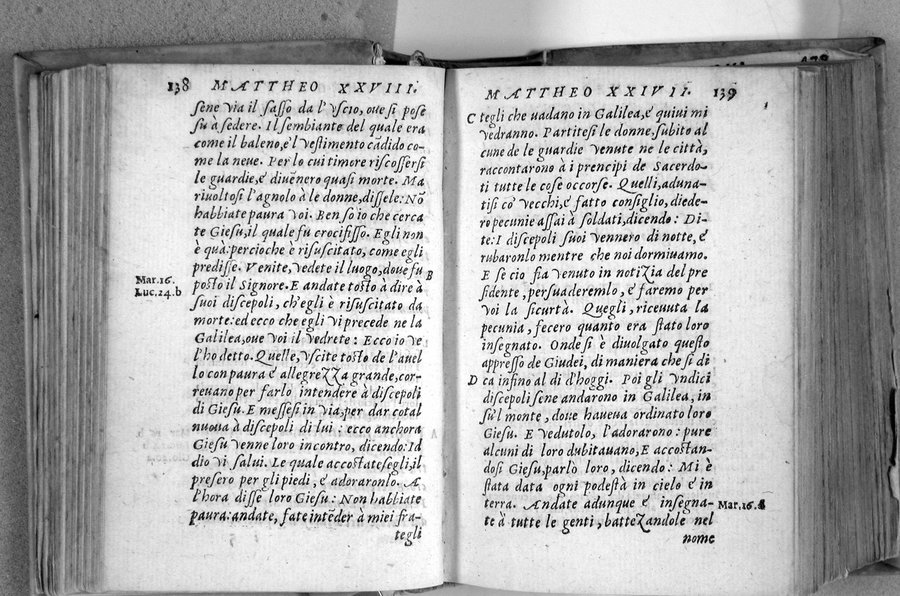 138 MATTHEO XXVIII.
sene via il sasso da l'vscio, oue si pose
su à sedere. Il sembiante del quale era
come il baleno, e'l vestimento cãdido co-
me la neue. Per lo cui timore riscossersi
le guardie, e' diuẽnero quasi morte. Ma
riuoltosi l'agnolo à le donne, dissele: Nõ
habbiate paura voi. Ben so io che cerca
te Giesu, il quale fu crocifisso. Egli non
è quà: percioche è risuscitato, come egli
predisse. Venite, vedete il luogo, doue fu
B
Mar.16.
Luc.24.b
posto il Signore. E andate tosto à dire à
suoi discepoli, ch'egli è risuscitato da
morte: ed ecco che egli vi precede ne la
Galilea, oue voi il vedrete: Ecco io ve
l'ho detto. Quelle, vscite tosto de l'auel
lo con paura e' allegrezza grande, cor-
reuano per farlo intendere à discepoli
di Giesu. E messesi in via, per dar cotal
nuoua à discepoli di lui: ecco anchora
Giesu venne loro incontro, dicendo: Id
dio vi salui. Le quale accostatesegli, il
presero per gli piedi, e' adoraronlo. A
l'hora disse loro Giesu: Non habbiate
paura: andate, fate intẽder à miei fra-
tegli
MATTHEO XXIVII. 139
C tegli che uadano in Galilea, e' quiui mi
vedranno. Partitesi le donne, subito al
cune de le guardie venute ne le città,
raccontarono à i prencipi de Sacerdo-
ti tutte le cose occorse. Quelli, aduna-
tisi co' vecchi, e' fatto consiglio, diede-
ro pecunie assai à soldati, dicendo: Di-
te: I discepoli suoi vennero di notte, e'
rubaronlo mentre che noi dormiuamo.
E se cio fia venuto in notizia del pre
sidente, persuaderemlo, e' faremo per
voi la sicurtà. Quegli, riceuuta la
pecunia, fecero quanto era stato loro
insegnato. Onde si è diuolgato questo
appresso de Giudei, di maniera che si di
D ca infino al di d'hoggi. Poi gli vndici
discepoli sene andarono in Galilea, in
sù'l monte, doue haueua ordinato loro
Giesu. E vedutolo, l'adorarono: pure
alcuni di loro dubitauano, E accostan-
dosi Giesu, parlo loro, dicendo: Mi è
stata data ogni podestà in cielo e' in
terra. Andate adunque e' insegna-
Mar.16.
te à tutte le genti, battezandole nel
nome